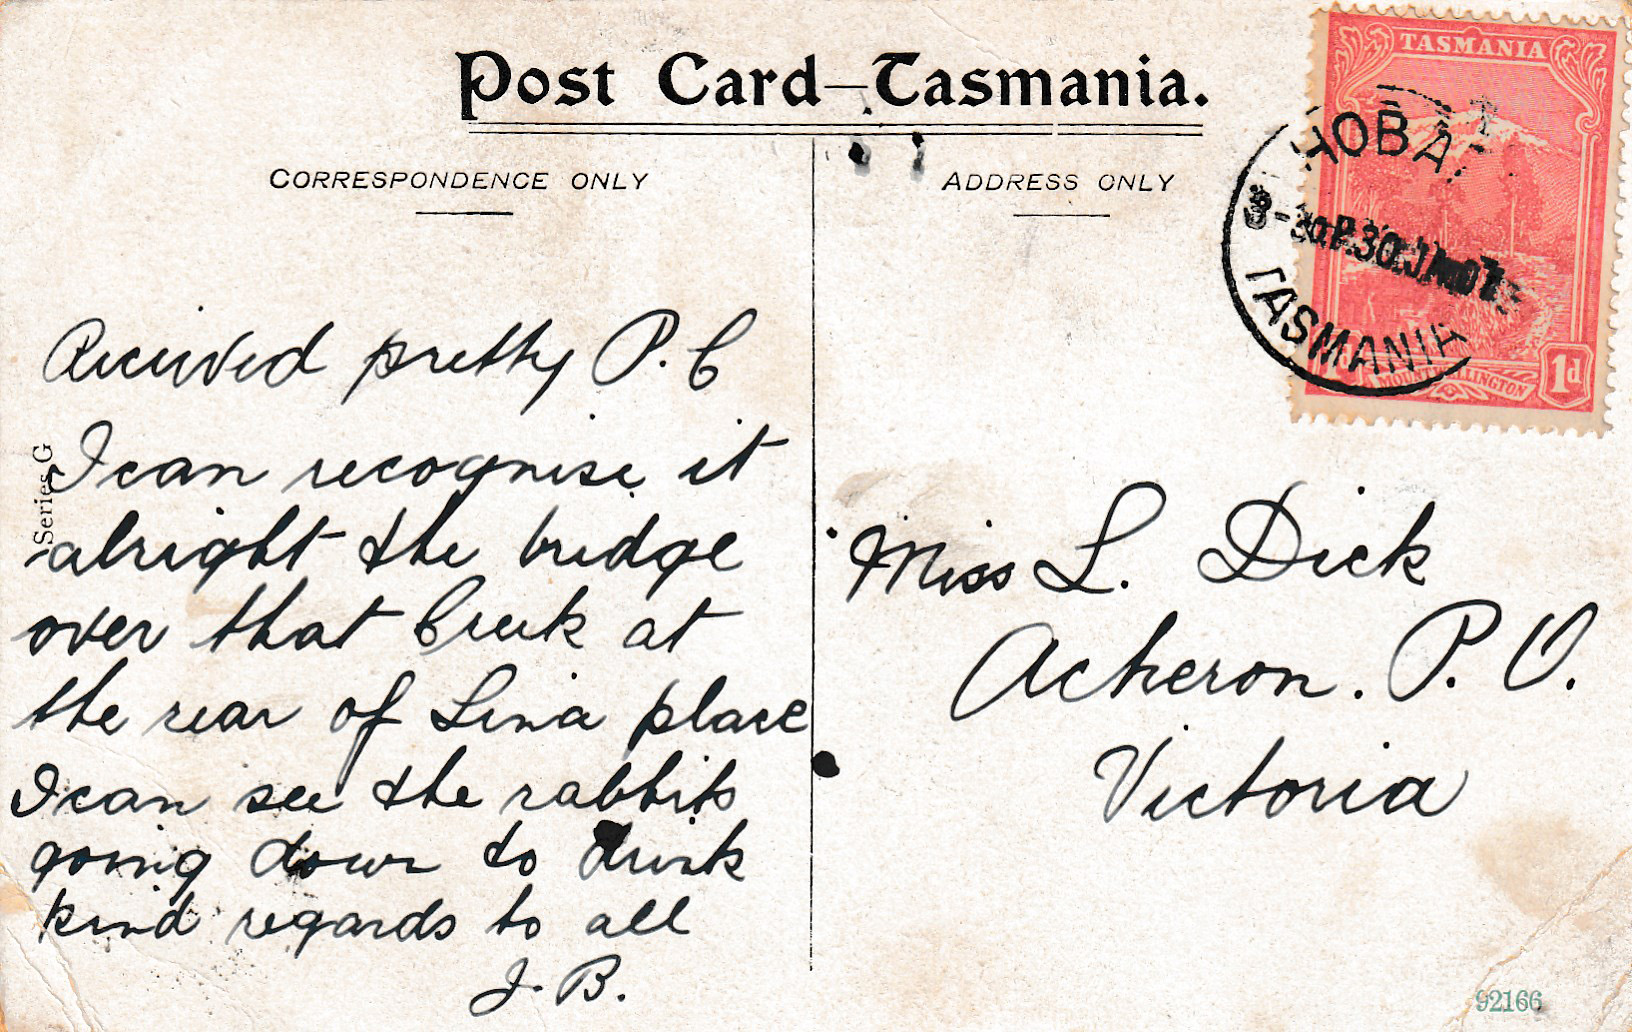 Post Card—Tasmania.
CORRESPONDENCE ONLY
ADDRESS ONLY
TASMANIA
HOBA
3-30.P.30.JA 07
TASMANIA
MOUNT WELLINGTON
1d
Series G
Received pretty P. C
I can recognise it
alright the bridge
over that Creek at
the rear of Lina place
I can see the rabbits
going down to drink
kind regards to all
J. B.
Miss L. Dick
Acheron. P. O.
Victoria
92166